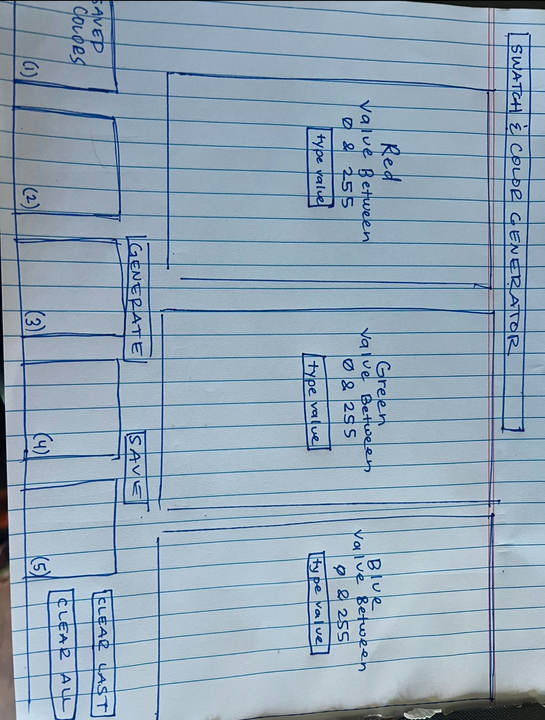 SWATCH & COLOR GENERATOR
Red
Value Between
0 & 255
type value
Green
Value Between
0 & 255
type value
Blue
Value Between
0 & 255
type value
GENERATE
SAVE
SAVED
COLORS
(1)
(2)
(3)
(4)
(5)
CLEAR LAST
CLEAR ALL